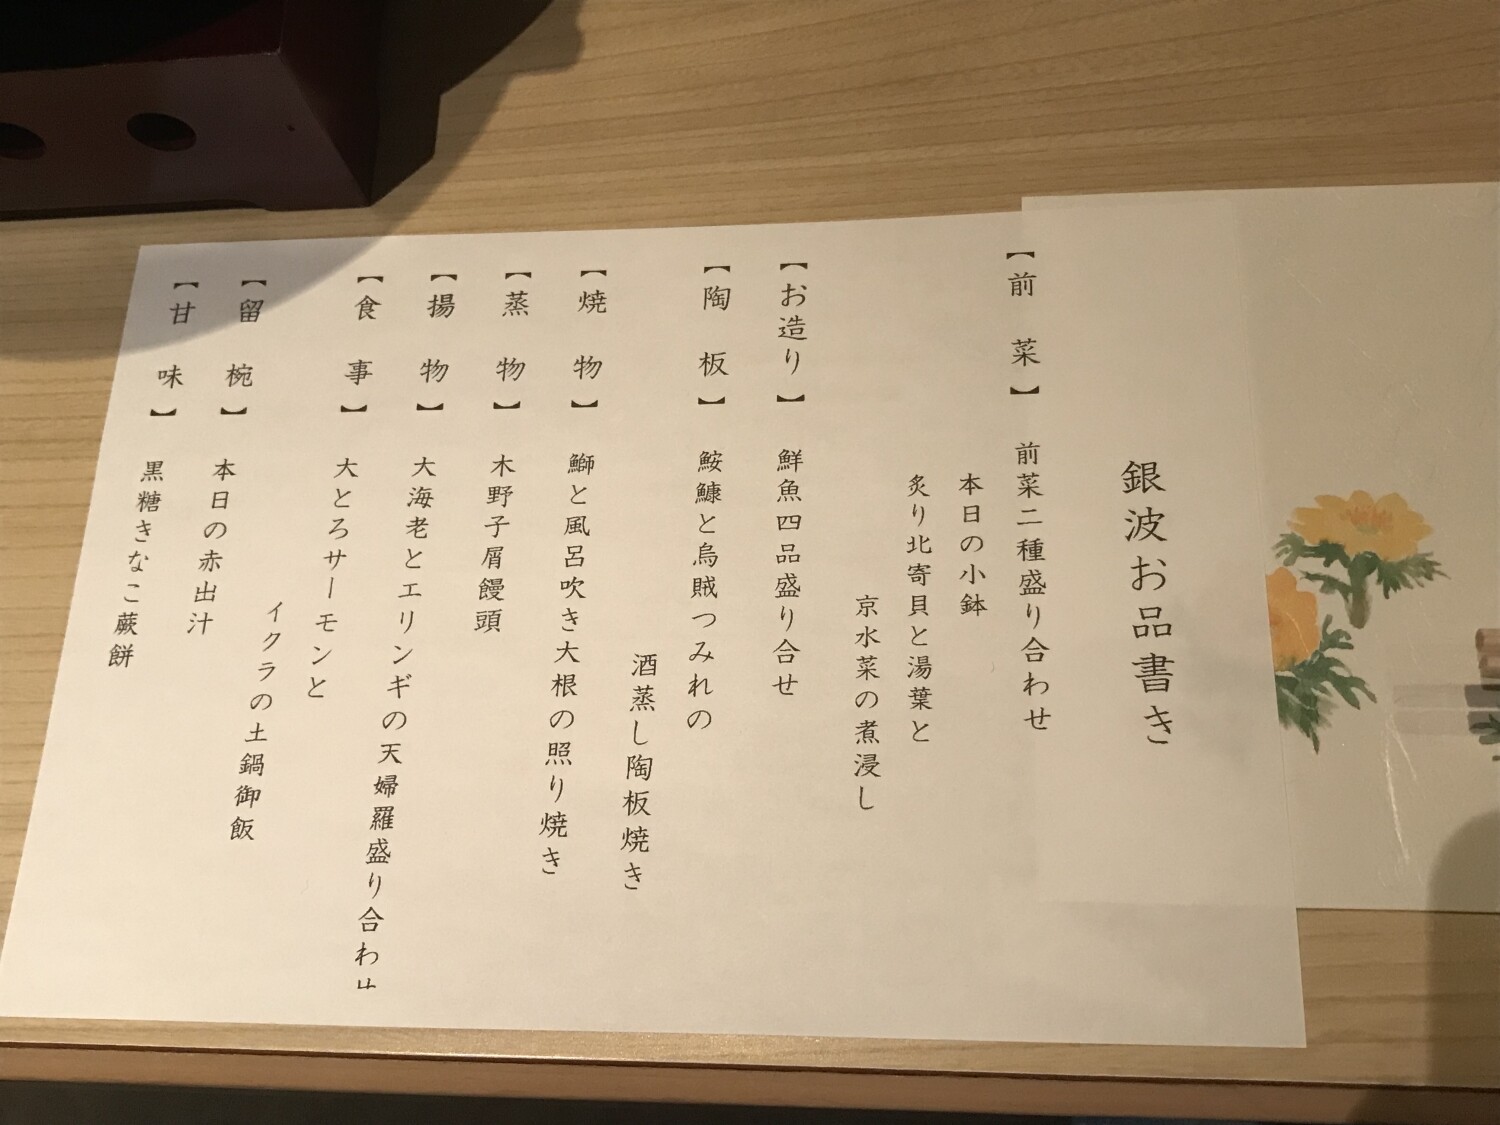 銀波お品書き
【前菜】 前菜二種盛り合わせ
本日の小鉢
炙り北寄貝と湯葉と
京水菜の煮浸し
【お造り】 鮮魚四品盛り合せ
【陶板】 鮟鱇と烏賊つみれの
酒蒸し陶板焼き
【焼物】 鰤と風呂吹き大根の照り焼き
【蒸物】 木野子屑饅頭
【揚物】 大海老とエリンギの天婦羅盛り合わせ
【食事】 大とろサーモンと
イクラの土鍋御飯
【留椀】 本日の赤出汁
【甘味】 黒糖きなこ蕨餅